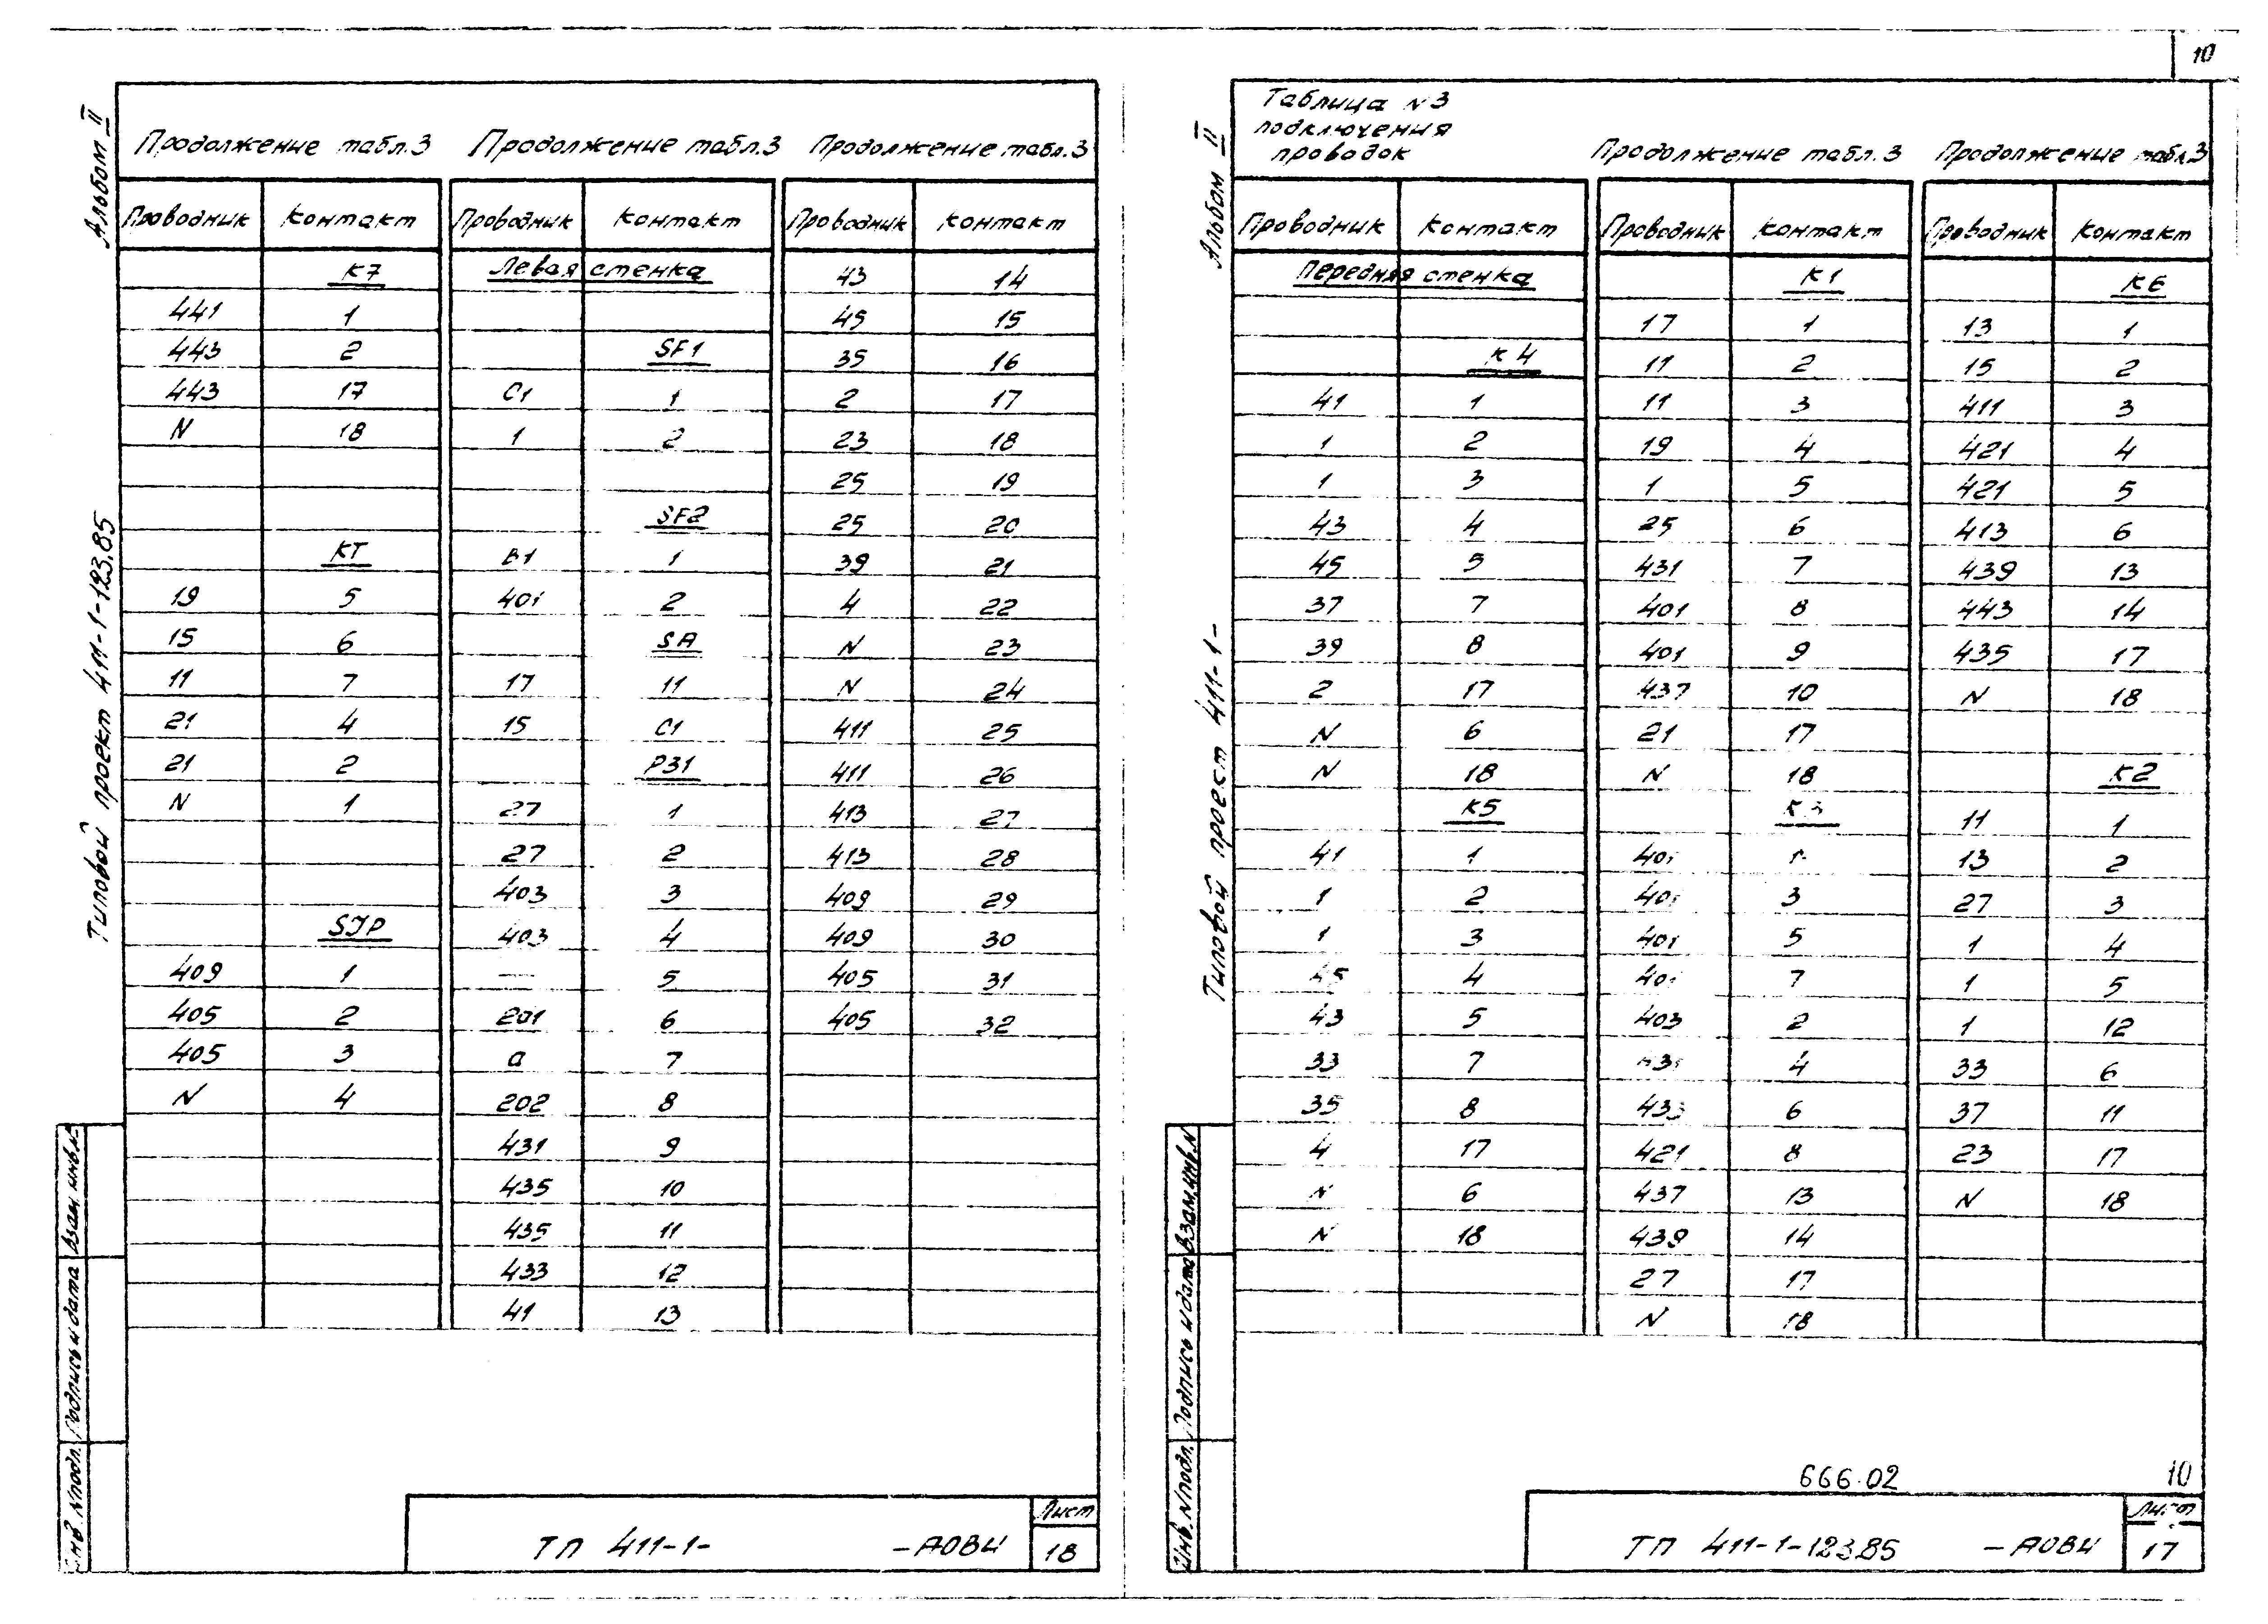 10
Альбом II
Типовой проект 411-1-123.85
Продолжение табл.3 Продолжение табл.3 Продолжение табл.3
Проводник Контакт Проводник Контакт Проводник Контакт
К7 Левая стенка 43 14
441 1 45 15
443 2 SF1 35 16
443 17 С1 1 2 17
N 18 1 2 23 18
25 19
SF2 25 20
КТ В1 1 39 21
19 5 401 2 4 22
15 6 SA N 23
11 7 17 11 N 24
21 4 15 С1 411 25
21 2 Р31 411 26
N 1 27 1 413 27
27 2 413 28
403 3 409 29
SJP 403 4 409 30
409 1 — 5 405 31
405 2 201 6 405 32
405 3 а 7
N 4 202 8
431 9
435 10
435 11
433 12
41 13
Взам. инв.N
Подпись и дата
Инв. N подл.
ТП 411-1- -АОВИ
Лист
18
Альбом II
Типовой проект 411-1-
Таблица N3
подключения
проводок
Продолжение табл.3 Продолжение табл.3
Проводник Контакт Проводник Контакт Проводник Контакт
Передняя стенка К1 К6
17 1 13 1
К4 11 2 15 2
41 1 11 3 411 3
1 2 19 4 421 4
1 3 1 5 421 5
43 4 25 6 413 6
45 5 431 7 439 13
37 7 401 8 443 14
39 8 401 9 435 17
2 17 437 10 N 18
N 6 21 17
N 18 N 18 К2
К5 11 1
41 1 13 2
1 2 3 27 3
1 3 401 5 1 4
4 7 1 5
43 5 403 2 1 12
33 7 4 33 6
35 8 6 37 11
4 17 421 8 23 17
N 6 437 13 N 18
N 18 439 14
27 17
N 18
Взам.инв.N
Подпись и дата
Инв. N подл.
666-02 10
ТП 411-1-123.85 -АОВИ
Лист
17